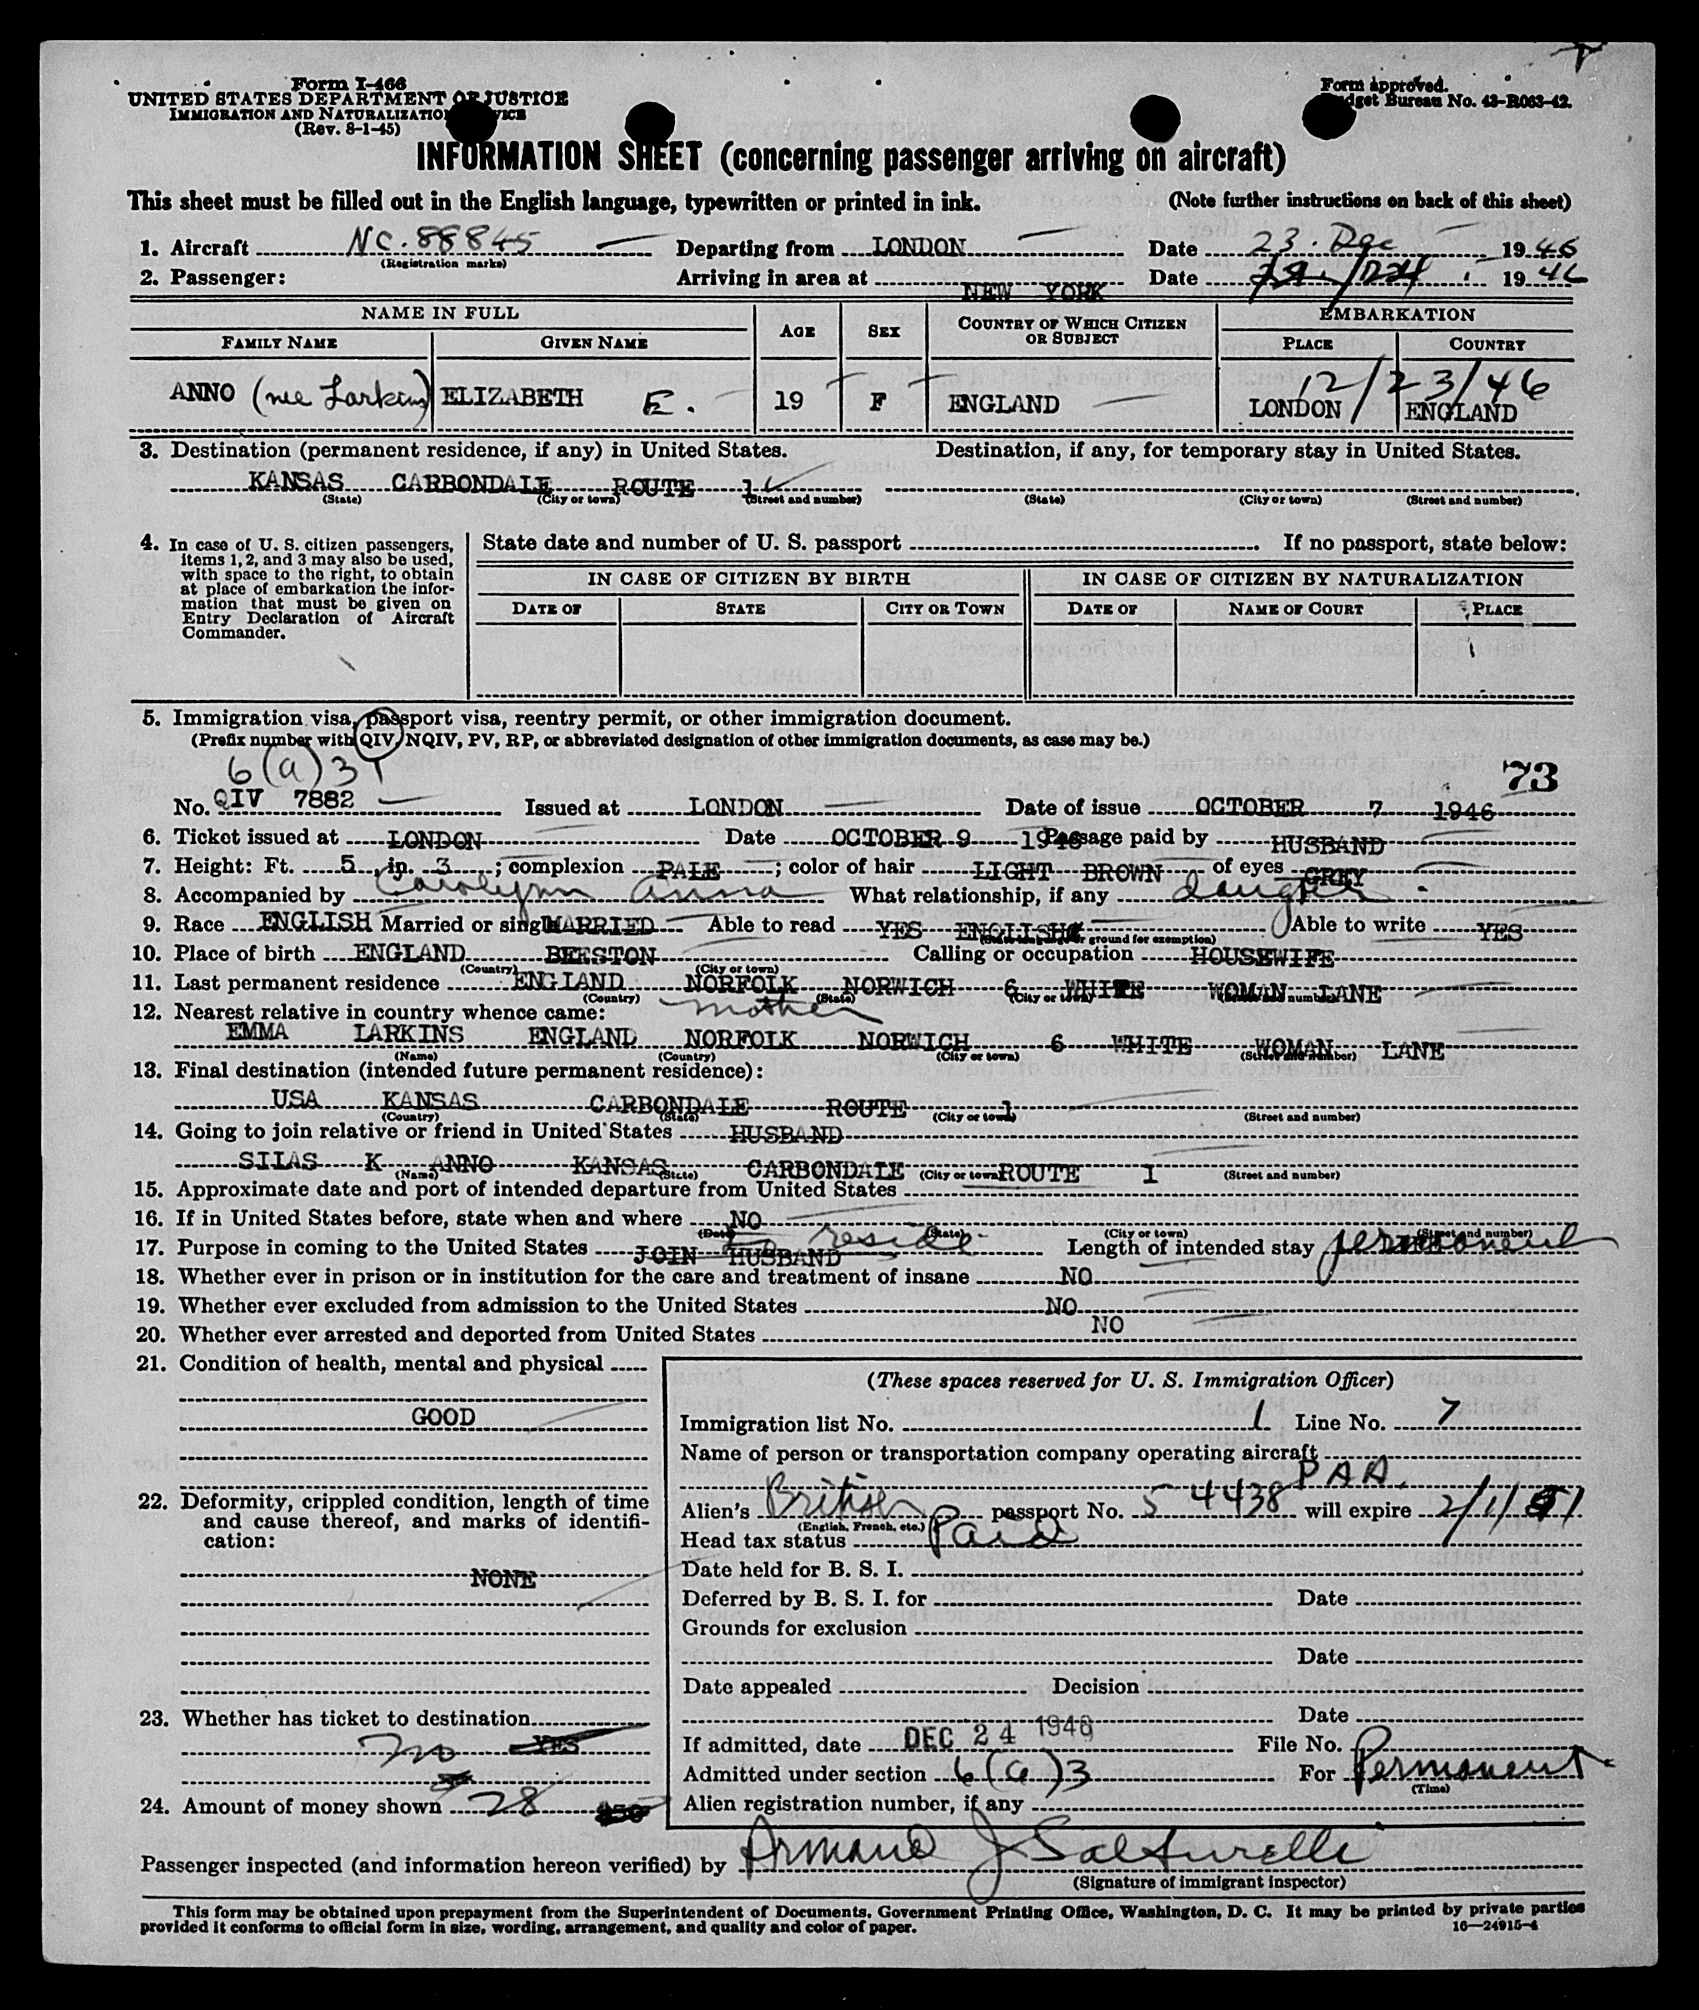 Form I-466
UNITED STATES DEPARTMENT OF JUSTICE
IMMIGRATION AND NATURALIZATION SERVICE
(Rev. 8-1-45)
Form approved.
Budget Bureau No. 43-R063-42.
INFORMATION SHEET (concerning passenger arriving on aircraft)
This sheet must be filled out in the English language, typewritten or printed in ink. (Note further instructions on back of this sheet)
1. Aircraft NC. 88845 Departing from LONDON Date 23. Dec 1946
(Registration marks)
2. Passenger: Arriving in area at NEW YORK Date 1946
NAME IN FULL AGE SEX COUNTRY OF WHICH CITIZEN OR SUBJECT EMBARKATION
FAMILY NAME GIVEN NAME PLACE COUNTRY
12/23/46
ANNO (nee Larkins) ELIZABETH E. 19 F ENGLAND LONDON ENGLAND
3. Destination (permanent residence, if any) in United States. Destination, if any, for temporary stay in United States.
KANSAS CARBONDALE ROUTE 1
(State) (City or town) (Street and number) (State) (City or town) (Street and number)
4. In case of U. S. citizen passengers, items 1, 2, and 3 may also be used, with space to the right, to obtain at place of embarkation the information that must be given on Entry Declaration of Aircraft Commander.
State date and number of U. S. passport . If no passport, state below:
IN CASE OF CITIZEN BY BIRTH IN CASE OF CITIZEN BY NATURALIZATION
DATE OF STATE CITY OR TOWN DATE OF NAME OF COURT PLACE
5. Immigration visa, passport visa, reentry permit, or other immigration document.
(Prefix number with QIV, NQIV, PV, RP, or abbreviated designation of other immigration documents, as case may be.)
6(a)3 73
No. QIV 7882 Issued at LONDON Date of issue OCTOBER 7 1946
6. Ticket issued at LONDON Date OCTOBER 9 1946 Passage paid by HUSBAND
7. Height: Ft. 5, in. 3; complexion PALE; color of hair LIGHT BROWN of eyes GREY
8. Accompanied by Carolynn Anna What relationship, if any daughter
9. Race ENGLISH Married or single MARRIED Able to read YES ENGLISH Able to write YES
(State language or ground for exemption)
10. Place of birth ENGLAND BEESTON Calling or occupation HOUSEWIFE
(Country) (City or town)
11. Last permanent residence ENGLAND NORFOLK NORWICH 6 WHITE WOMAN LANE
(Country) (State) (City or town) (Street and number)
12. Nearest relative in country whence came: mother
EMMA LARKINS ENGLAND NORFOLK NORWICH 6 WHITE WOMAN LANE
(Name) (Country) (City or town) (Street and number)
13. Final destination (intended future permanent residence):
USA KANSAS CARBONDALE ROUTE 1
(Country) (State) (City or town) (Street and number)
14. Going to join relative or friend in United States HUSBAND
SILAS K ANNO KANSAS CARBONDALE ROUTE 1
(Name) (State) (City or town) (Street and number)
15. Approximate date and port of intended departure from United States
16. If in United States before, state when and where NO
(Date) (State) (City or town) (Street and number)
17. Purpose in coming to the United States JOIN HUSBAND to reside Length of intended stay permanent
18. Whether ever in prison or in institution for the care and treatment of insane NO
19. Whether ever excluded from admission to the United States NO
20. Whether ever arrested and deported from United States NO
21. Condition of health, mental and physical
GOOD
22. Deformity, crippled condition, length of time and cause thereof, and marks of identification:
NONE
23. Whether has ticket to destination
No YES
24. Amount of money shown 28 $50
(These spaces reserved for U. S. Immigration Officer)
Immigration list No. 1 Line No. 7
Name of person or transportation company operating aircraft
PAA.
Alien's British passport No. 54438 will expire 2/1/51
(English, French, etc.)
Head tax status Paid
Date held for B. S. I.
Deferred by B. S. I. for Date
Grounds for exclusion
Date
Date appealed Decision
Date
If admitted, date DEC 24 1946 File No.
Admitted under section 6(a)3 For Permanent
(Time)
Alien registration number, if any
Passenger inspected (and information hereon verified) by Armand J Salturelli
(Signature of immigrant inspector)
This form may be obtained upon prepayment from the Superintendent of Documents, Government Printing Office, Washington, D. C. It may be printed by private parties
provided it conforms to official form in size, wording, arrangement, and quality and color of paper. 16—24915-4